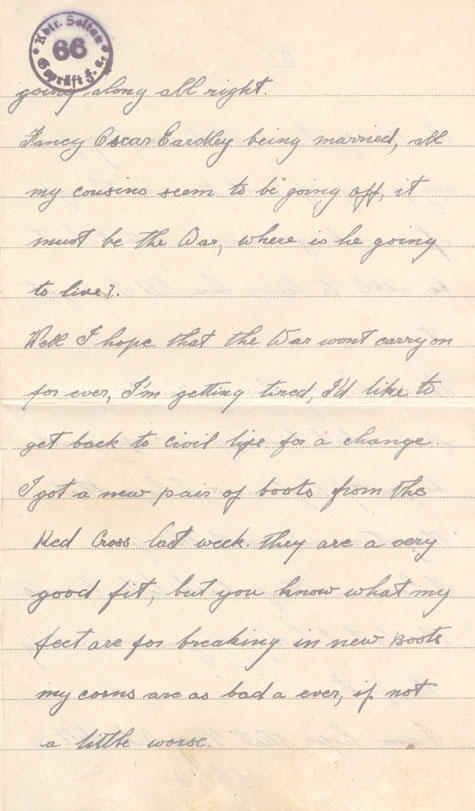 Kdtr. Soltau
66
Geprüft F. a.
going along all right.
Fancy Oscar Eardley being married, all
my cousins seem to be going off, it
must be the War, where is he going
to live?.
Well I hope that the War wont carry on
for ever, I'm getting tired, I'd like to
get back to civil life for a change.
I got a new pair of boots from the
Red Cross last week. they are a very
good fit, but you know what my
feet are for breaking in new Boots
my corns are as bad a ever, if not
a little worse.